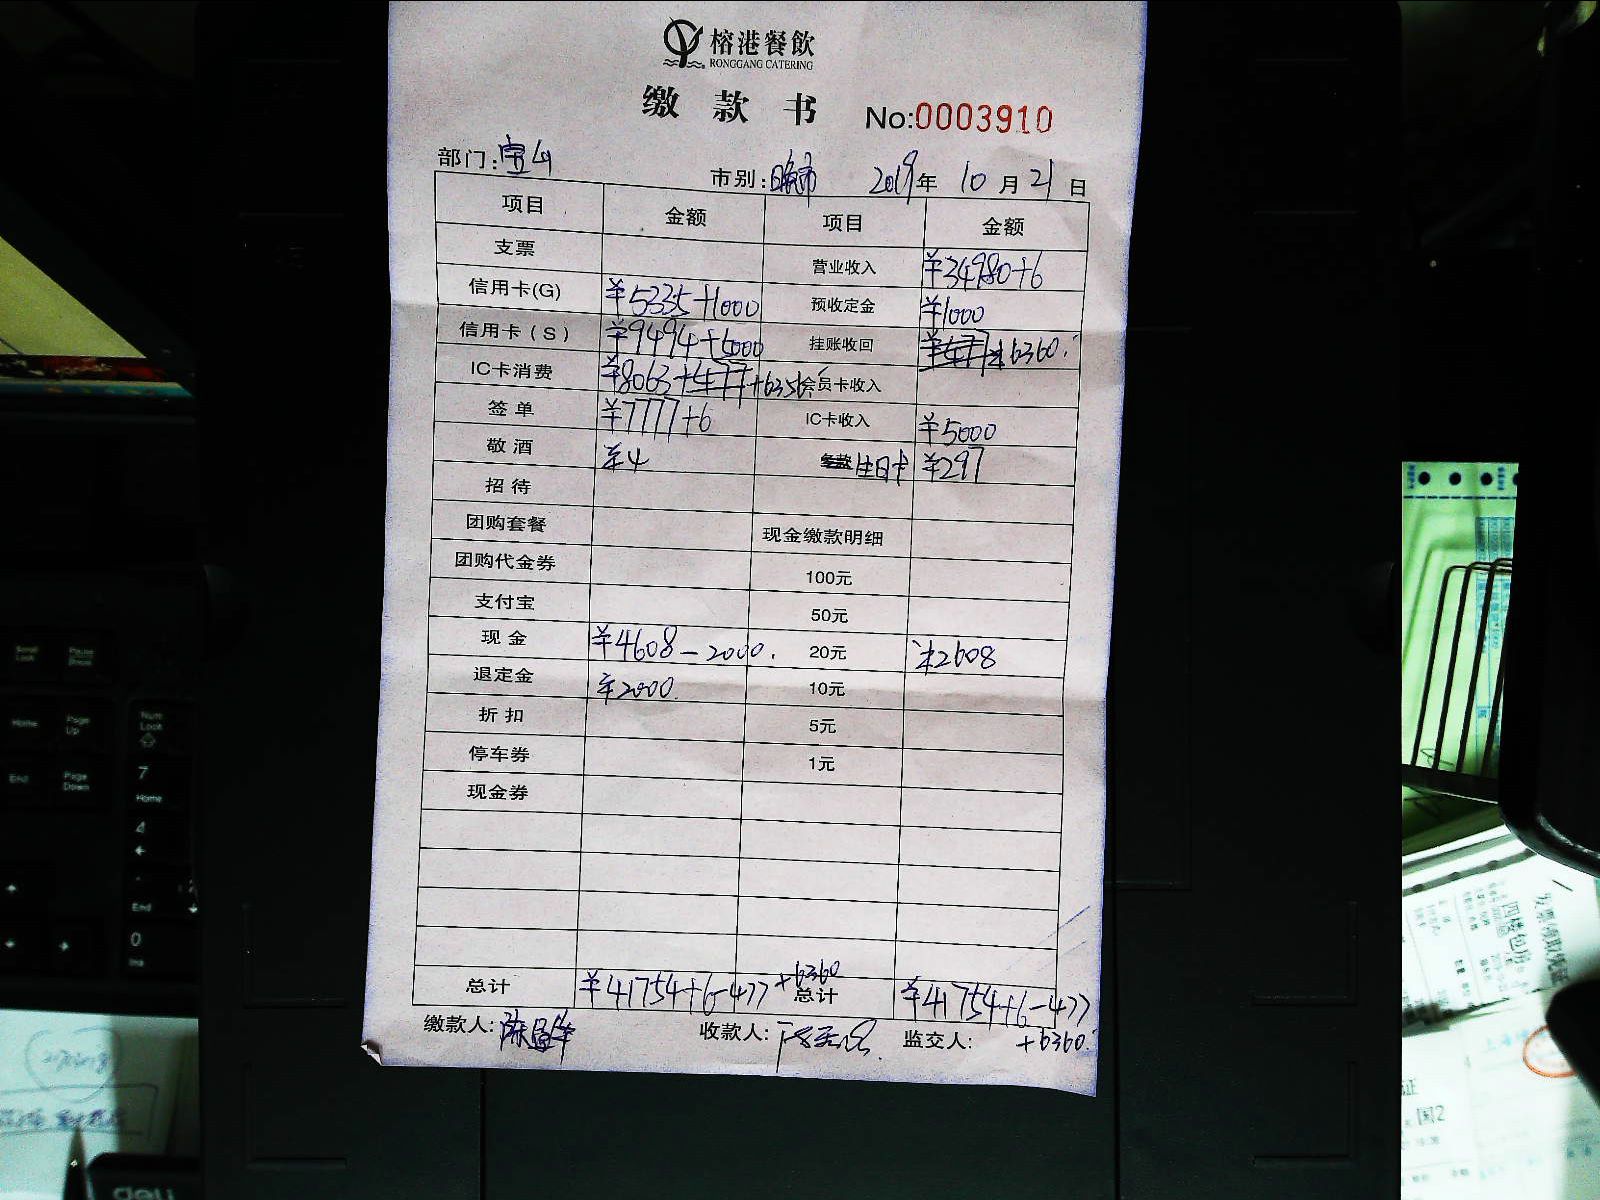 榕港餐飲
RONGGANG CATERING
缴款书 No:0003910
部门:宝山 市别:晚市 2019年10月21日
项目 金额 项目 金额
支票 营业收入 ¥34980+6
信用卡(G) ¥5335+1000 预收定金 ¥1000
信用卡(S) ¥9494+5000 挂账收回 ¥477 +6360
IC卡消费 ¥8063+477+6356 会员卡收入
签单 ¥7777+6 IC卡收入 ¥5000
敬酒 ¥4 生日卡 ¥297
招待
团购套餐 现金缴款明细
团购代金券 100元
支付宝 50元
现金 ¥4608-2000. 20元 ¥2608
退定金 ¥2000. 10元
折扣 5元
停车券 1元
现金券
总计 ¥41754+6-477 +6360 总计 ¥41754+6-477 +6360
缴款人: 收款人: 监交人:
Scroll Lock
Pause Break
Home
Page Up
Num Lock
End
Page Down
7
Home
4
End
0
Ins
deli
四楼包房
国2